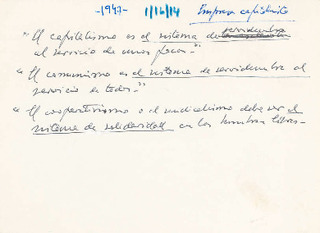 -1947- 1/16/14 Empresa capitalista
"El capitalismo es el sistema de servidumbre
al servicio de unos pocos."
"El comunismo es el sistema de servidumbre al
servicio de todos."
"El cooperativismo o el sindicalismo debe ser el
sistema de solidaridad en los hombres libres-